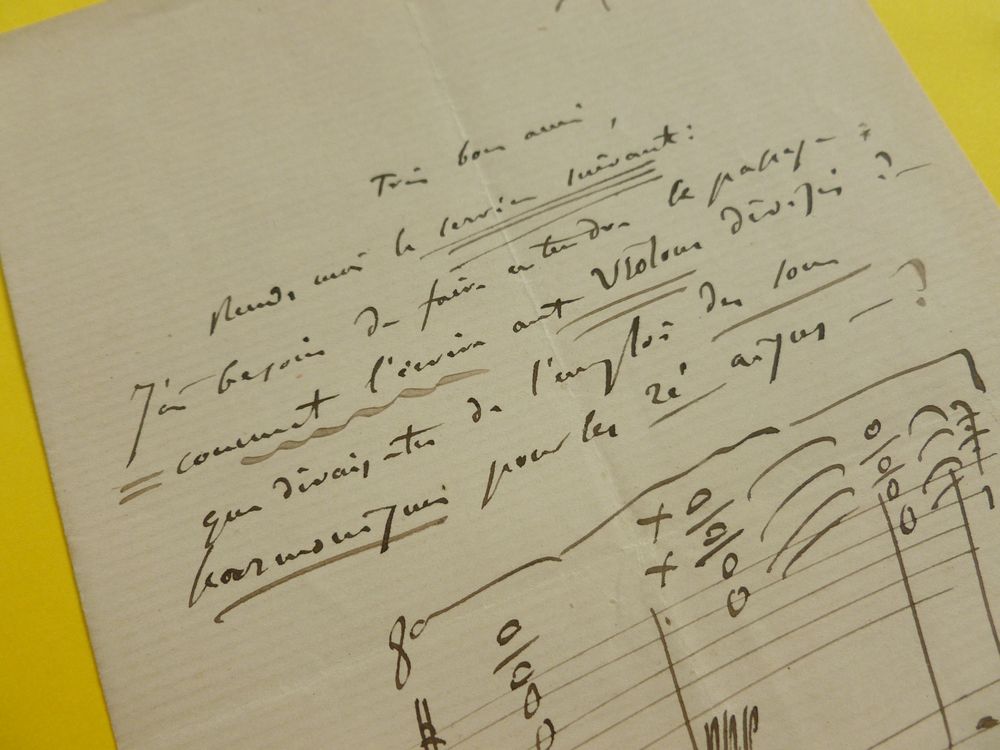 Très bon ami,
Rends moi le service suivant:
J'ai besoin de faire entendre le passage :
comment l'écrire aux Violons divisés ? –
que dirais-tu de l'emploi des sons
harmoniques pour les ré aigus – ?
8a
ppp